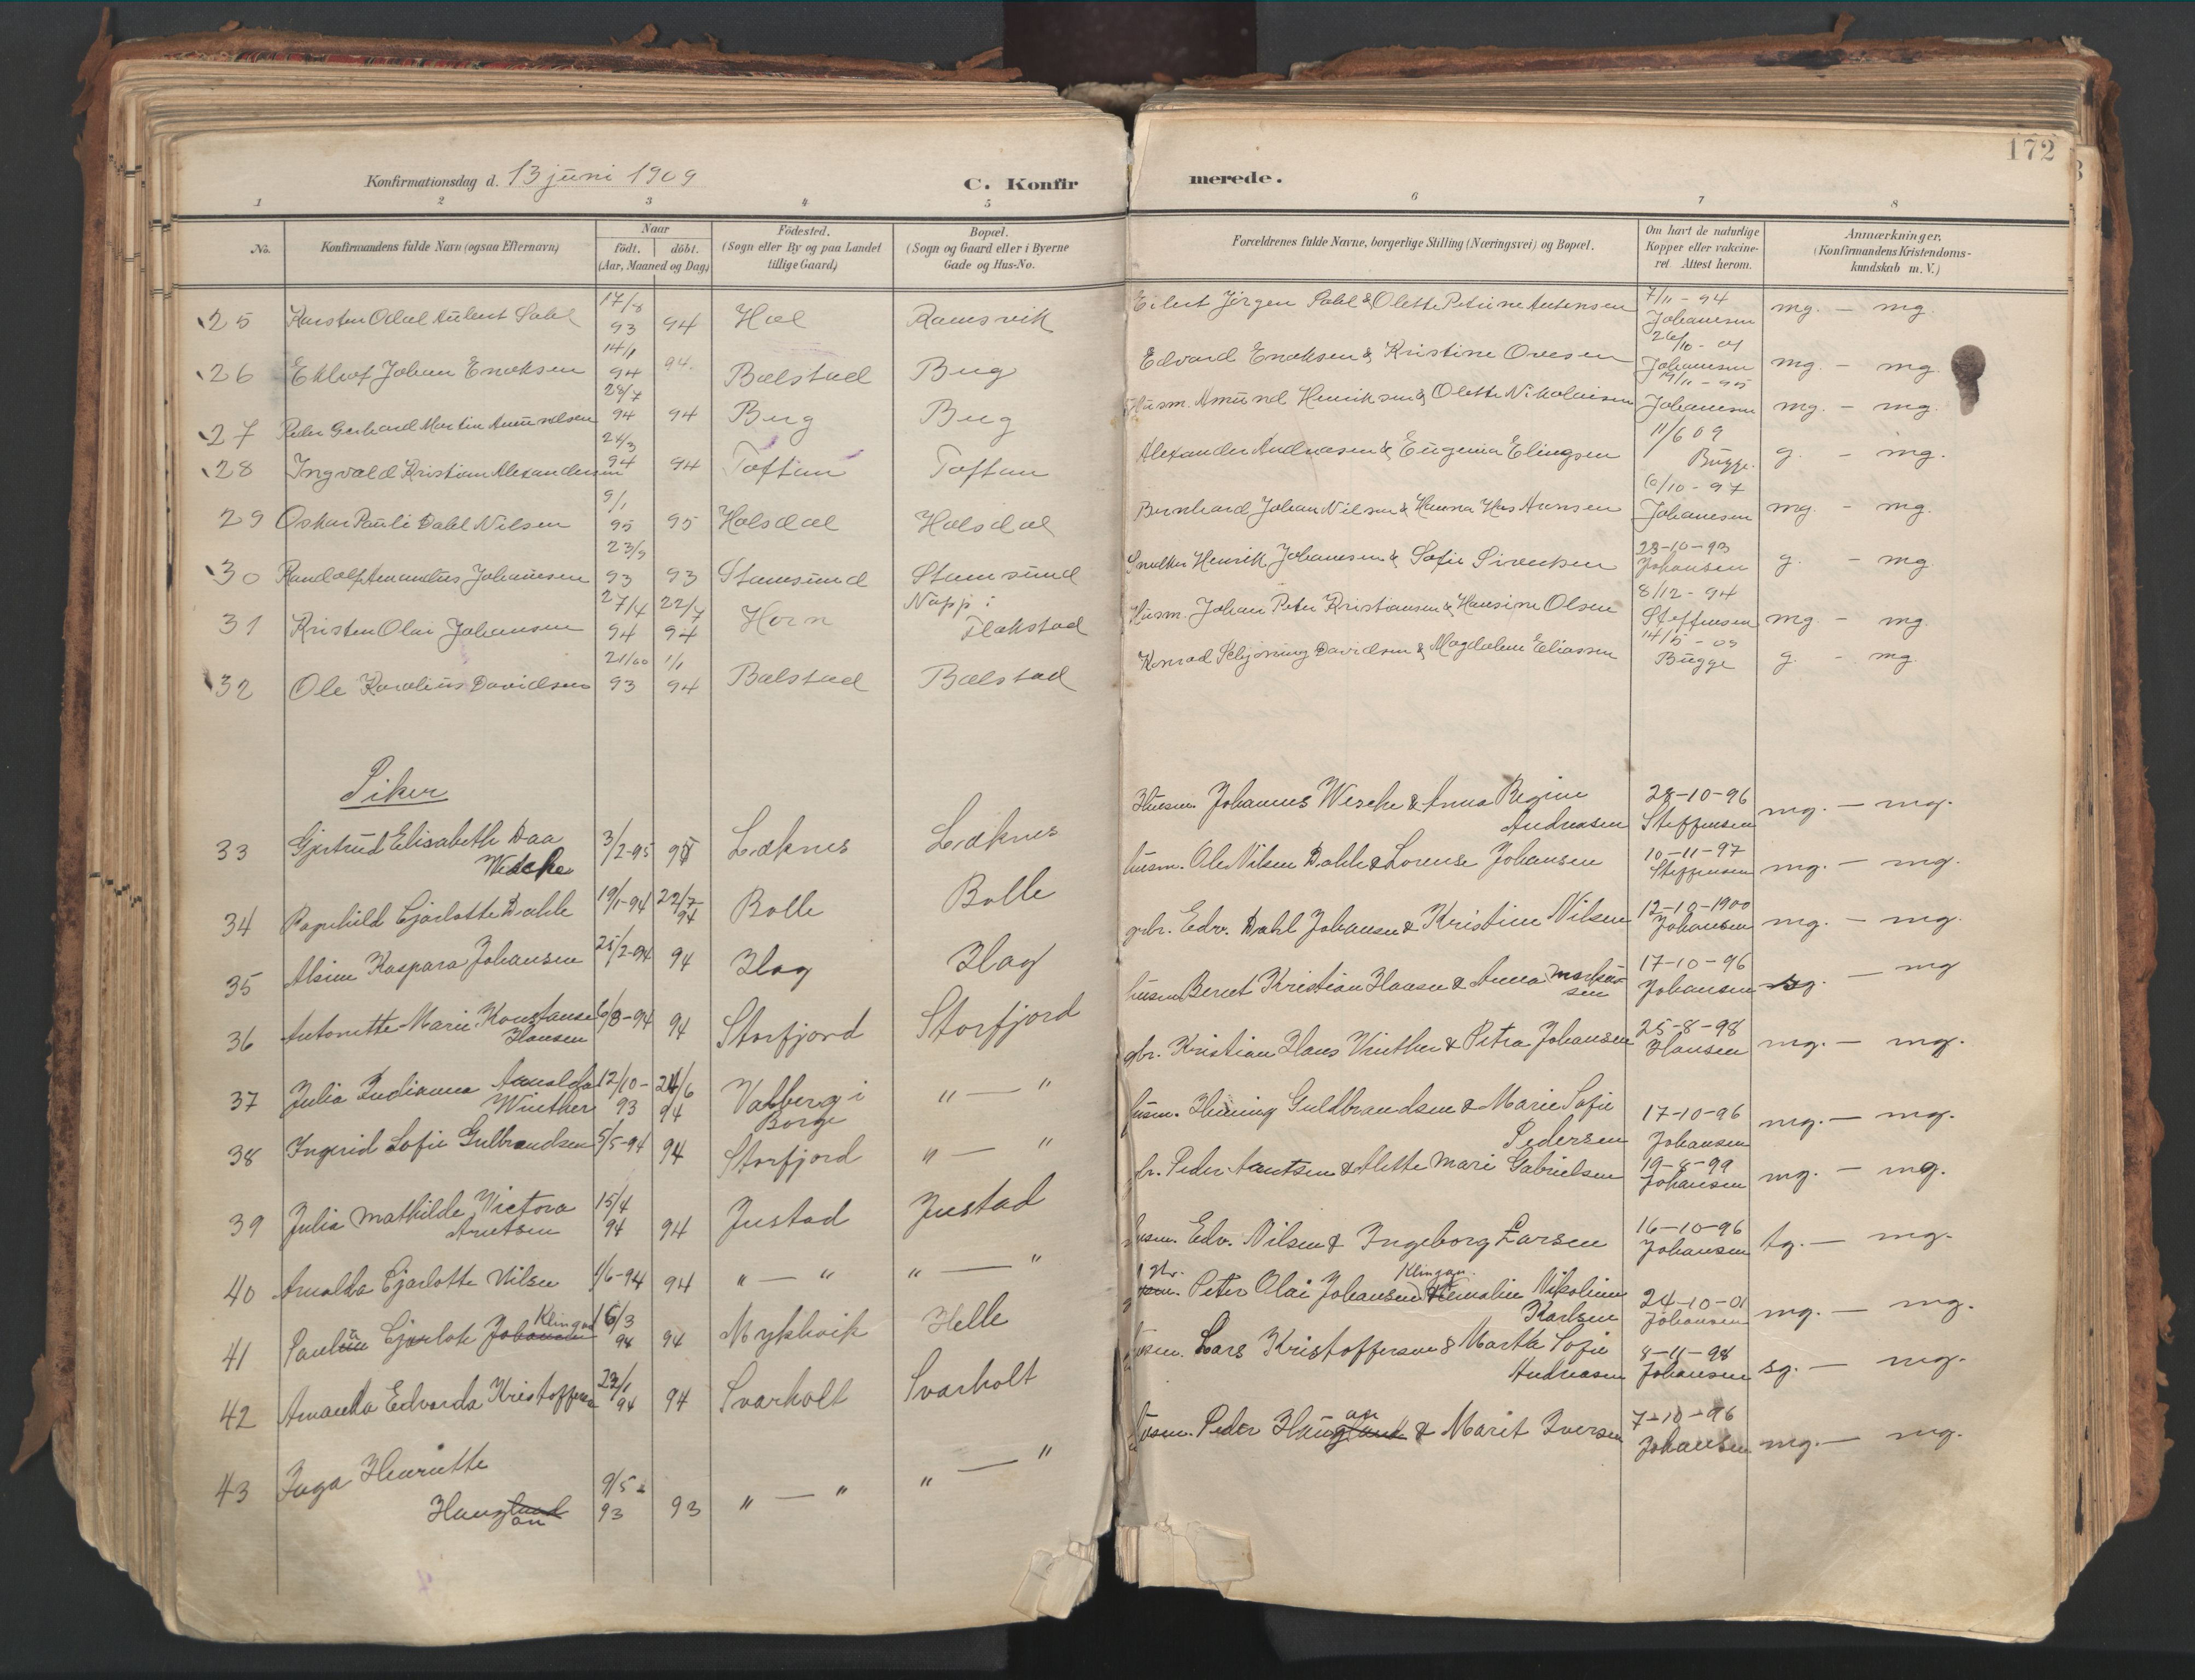 172
Konfirmationsdag d. 13 juni 1909
C. Konfirmerede.
1 2 3 4 5 6 7 8
No.
Konfirmandens fulde Navn (ogsaa Efternavn)
Naar
födt. döbt.
(Aar, Maaned og Dag)
Födested.
(Sogn eller By og paa Landet
tillige Gaard)
Bopæl.
(Sogn og Gaard eller i Byerne
Gade og Hus-No.
Forældrenes fulde Navne, borgerlige Stilling (Næringsvei) og Bopæl.
Om havt de naturlige
Kopper eller vakcine-
ret. Attest herom.
Anmærkninger,
(Konfirmandens Kristendoms-
kundskab m. V.)
25 Karsten Odal Aubert Dahl 17/8 93 94 Hol Ramsvik Eilert Jørgen Dahl & Olette Petrine Antonsen 7/11-94 Johansen mg. - mg.
26 Johan Enoksen 14/1 94 94. Balstad Bug Edvard Enoksen & Kristine Ovesen 26/10-01 Johansen mg. - mg.
27 Peder Gerhard Martin Amundsen 28/7 94 94 Berg Bug Husm. Amund Henriksen & Olette Nikolaisen 19/11-95 Johansen mg. - mg.
28 Ingvald Kristian Alexandersen 24/3 94 94 Toftan Toftan Alexander Andreasen & Eugenia Elingsen 11/6 09 Bugge. g. - mg.
29 Oskar Pauli Dahl Nilsen 9/1 95 95 Holsdal Holsdal Bernhard Johan Nilsen & Hanna Hansen 6/10-97 Johansen mg. - mg.
30 Randolf Amandus Johansen 23/9 93 93 Stamsund Stamsund Snedker Henrik Johansen & Sofie Sivertsen 23-10-93 Johansen g. - mg.
31 Kristen Olai Johansen 27/4 94 22/7 94 Horn Napp i Flakstad Husm. Johan Peter Kristiansen & Hansine Olsen 8/12-94 Steffensen mg. - mg.
32 Ole Karolius Davidsen 21/10 93 1/1 94 Balstad Balstad Konrad Schjöning Davidsen & Magdalene Eliassen 14/5-09 Bugge g. - mg.
Piker
33 Gjertrud Elisabeth Daa Wesche 3/2-95 95 Leknes Leknes Husm. Johannes Wesche & Anna Regine Andreasen 28-10-96 Steffensen mg. - mg.
34 Ragnhild Charlotte Dahle 19/1-94 22/7 94 Bolle Bolle husm. Ole Nilsen Dahle & Lorense Johansen 10-11-97 Steffensen mg. - mg.
35 Alsine Kaspara Johansen 25/2-94 94 Hag Hag gbr. Edv. Dahl Johansen & Kristine Nilsen 12-10-1900 Johansen mg. - mg.
36 Antonette Marie Konstanse Hansen 6/8-94 94 Storfjord Storfjord husm Bernt Kristian Hansen & Anna Markussen 17-10-96 Johansen sg. - mg
37 Julia Indianna Arnolda Winther 12/10-93 24/6 94 Valberg i Borge " — " gbr. Kristian Hans Winther & Petra Johansen 25-8-98 Hansen mg. - mg.
38 Ingerid Sofie Gulbrandsen 5/5-94 94 Storfjord " — " husm. Henning Guldbrandsen & Marie Sofie Pedersen 17-10-96 Johansen mg. - mg.
39 Julia Mathilde Victora Arntsen 15/4 94 94 Justad Justad gbr. Peder Arntsen & Alette Mari Gabrielsen 19-8-99 Johansen mg. - mg.
40 Arnolda Charlotte Nilsen 1/6-94 94 " — " " — " husm. Edv. Nilsen & Ingeborg Larsen 16-10-96 Johansen tg. - mg.
41 Paulina Charlot Johansen Klingan 16/3 94 94 Mykhvik Helle Peter Olai Johansen Klingan & Nikoline Karlsen 24-10-01 Johansen mg. - mg.
42 Amanda Edvarda Kristoffersen 22/1 94 94 Svarholt Svarholt husm. Lars Kristoffersen & Martha Sofie Andreasen 8-11-98 Johansen sg. - mg.
43 Inga Henriette Haugland an 9/5 93 93 " — " " — " husm. Peder Haugland an & Marit Iversen 7-10-96 Johansen mg. - mg.